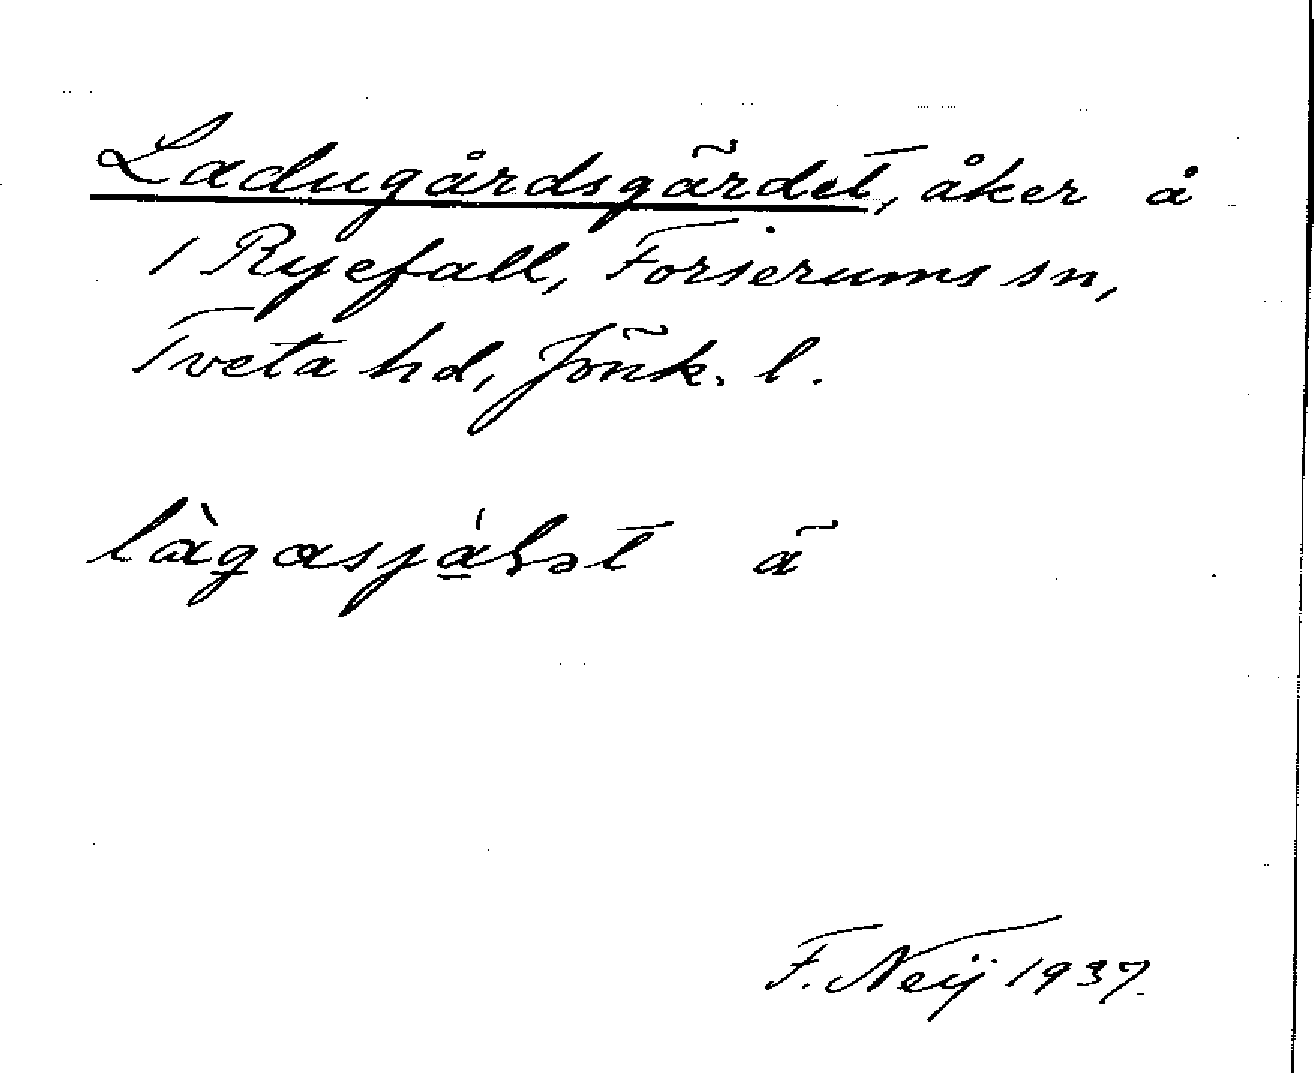 Ladugårdsgärdet, åker å
1 Ryefall, Forserums sn,
Tveta hd, Jönk. l.
làgasjá̱ꞎət ã
F. Neij 1937.